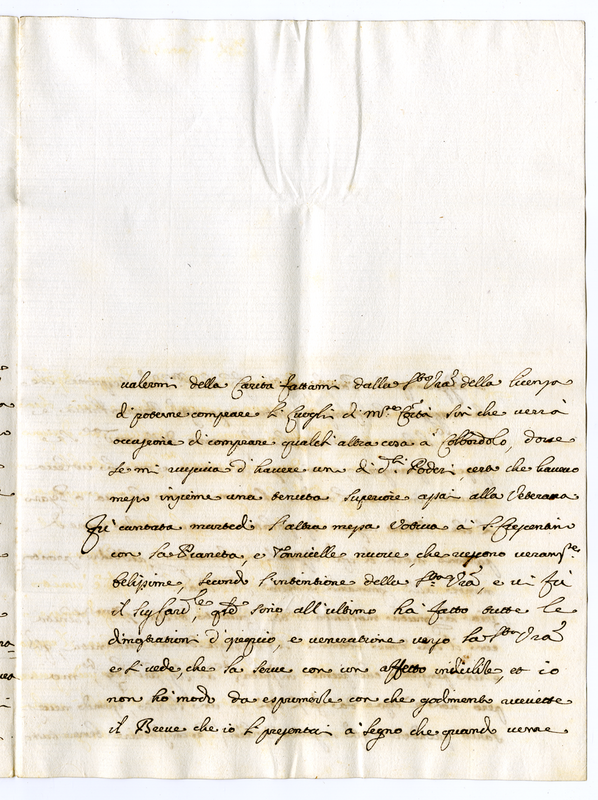 valermi della Carità fattami dalla S.tà Vrã della licenza
di poterne comprare li di m.re sin che verrà
occasione di comprare qualch'altra cosa à Colbordolo, dove
se mi d'havere un di d.ti Poderi, certo che haverò
messo insieme una tenuta superiore assai alla
Fù cantata martedì l'altra messa Votiva à S. Crescentino
con la Pianeta, e Tonnicelle nuove, che veram.te
belissime, secondo l'intentione della S.tà Vrã, e vi fù
il Sig.r Card.le, q.to sono all'ultimo ha fatto tutte le
dimostrationi d'ossequio, e veneratione verso la S.tà Vrã
e si vede, che la serve con un affetto indicibile, et io
non hò modo da esprimerle con che godimento ricevette
il Breve che io li presentai à segno che quando venne